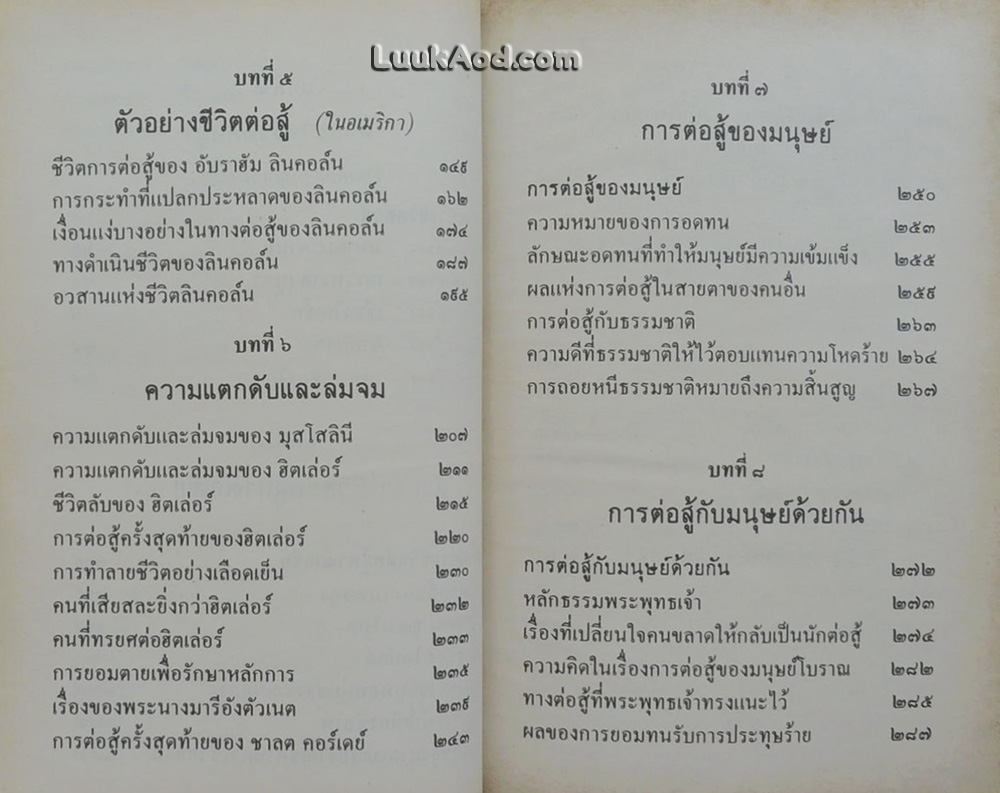 LuukAod.com
บทที่ ๕
ตัวอย่างชีวิตต่อสู้ (ในอเมริกา)
ชีวิตการต่อสู้ของ อับราฮัม ลินคอล์น ๑๔๙
การกระทำที่แปลกประหลาดของลินคอล์น ๑๖๒
เงื่อนแง่บางอย่างในทางต่อสู้ของลินคอล์น ๑๗๔
ทางดำเนินชีวิตของลินคอล์น ๑๘๗
อวสานแห่งชีวิตลินคอล์น ๑๙๕
บทที่ ๖
ความแตกดับและล่มจม
ความแตกดับและล่มจมของ มุสโสลินี ๒๐๗
ความแตกดับและล่มจมของ ฮิตเล่อร์ ๒๑๑
ชีวิตลับของ ฮิตเล่อร์ ๒๑๕
การต่อสู้ครั้งสุดท้ายของฮิตเล่อร์ ๒๒๐
การทำลายชีวิตอย่างเลือดเย็น ๒๓๐
คนที่เสียสละยิ่งกว่าฮิตเล่อร์ ๒๓๒
คนที่ทรยศต่อฮิตเล่อร์ ๒๓๓
การยอมตายเพื่อรักษาหลักการ ๒๓๕
เรื่องของพระนางมารีอังตัวเนต ๒๓๙
การต่อสู้ครั้งสุดท้ายของ ชาลต คอร์เดย์ ๒๔๓
บทที่ ๗
การต่อสู้ของมนุษย์
การต่อสู้ของมนุษย์ ๒๕๐
ความหมายของการอดทน ๒๕๓
ลักษณะอดทนที่ทำให้มนุษย์มีความเข้มแข็ง ๒๕๕
ผลแห่งการต่อสู้ในสายตาของคนอื่น ๒๕๙
การต่อสู้กับธรรมชาติ ๒๖๓
ความดีที่ธรรมชาติให้ไว้ตอบแทนความโหดร้าย ๒๖๔
การถอยหนีธรรมชาติหมายถึงความสิ้นสูญ ๒๖๗
บทที่ ๘
การต่อสู้กับมนุษย์ด้วยกัน
การต่อสู้กับมนุษย์ด้วยกัน ๒๗๒
หลักธรรมพระพุทธเจ้า ๒๗๓
เรื่องที่เปลี่ยนใจคนขลาดให้กลับเป็นนักต่อสู้ ๒๗๔
ความคิดในเรื่องการต่อสู้ของมนุษย์โบราณ ๒๘๒
ทางต่อสู้ที่พระพุทธเจ้าทรงแนะไว้ ๒๘๕
ผลของการยอมทนรับการประทุษร้าย ๒๘๗